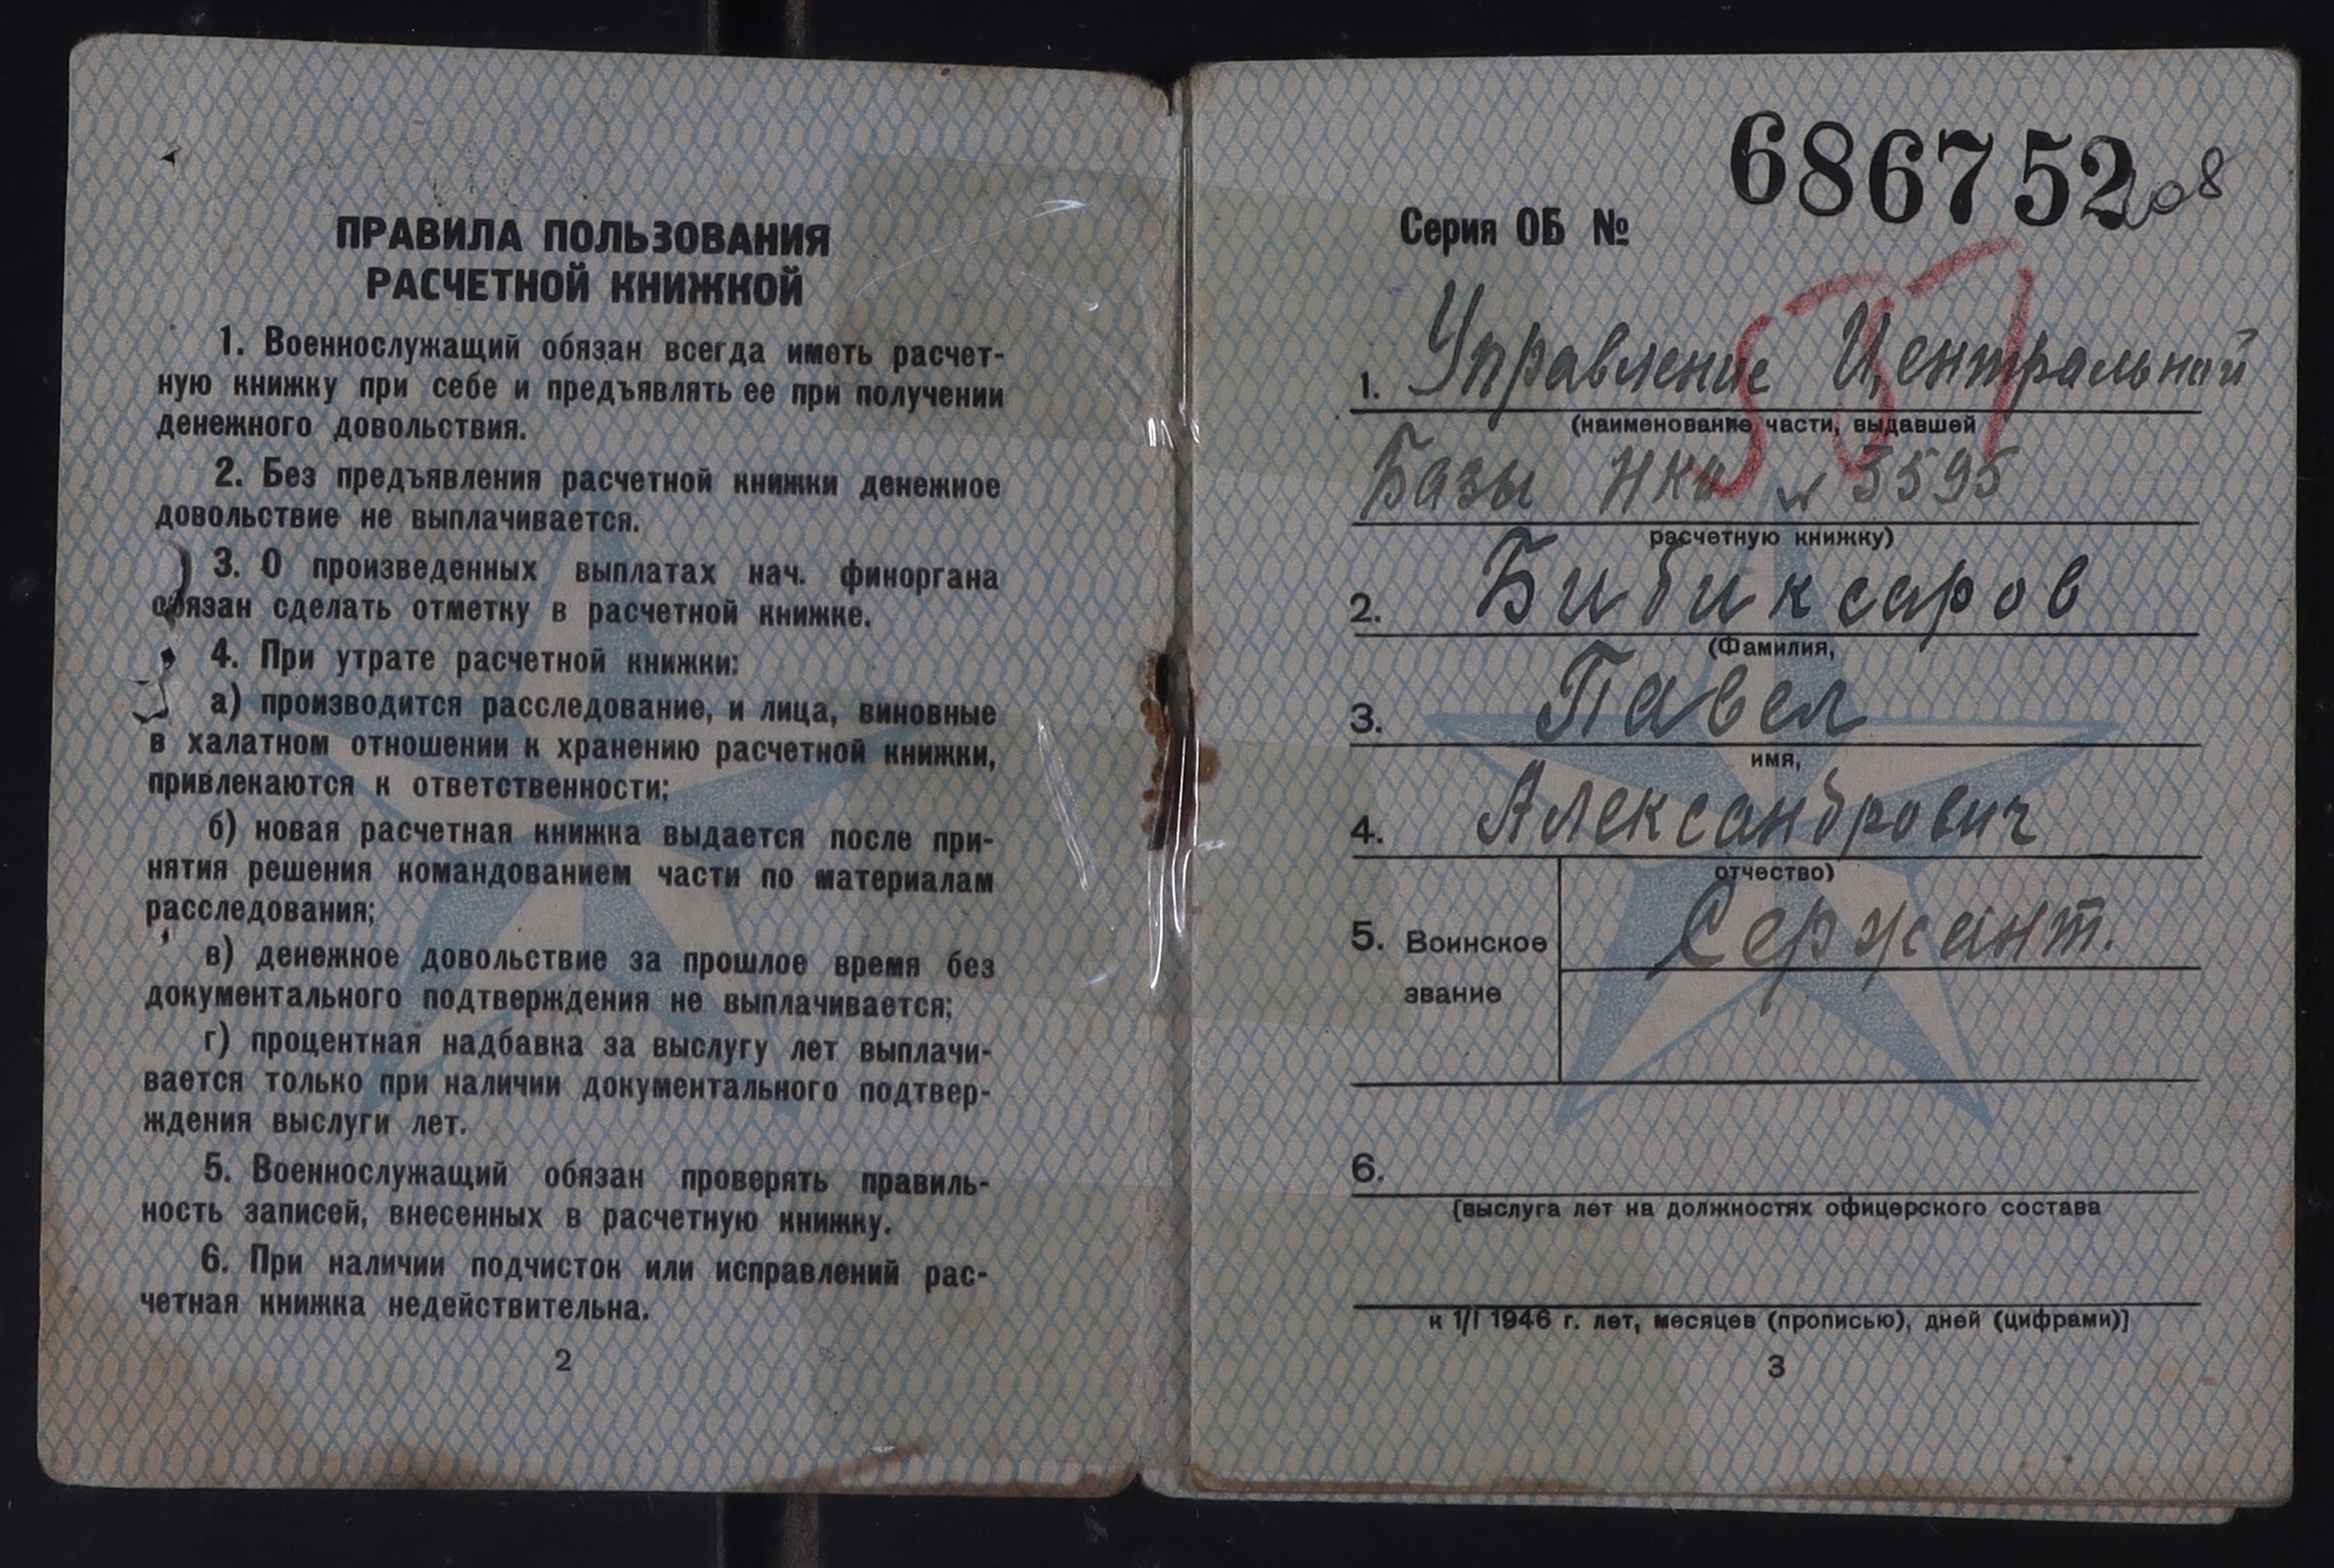 ПРАВИЛА ПОЛЬЗОВАНИЯ
РАСЧЕТНОЙ КНИЖКОЙ
1. Военнослужащий обязан всегда иметь расчет-
ную книжку при себе и предъявлять ее при получении
денежного довольствия.
2. Без предъявления расчетной книжки денежное
довольствие не выплачивается.
3. О произведенных выплатах нач. финоргана
обязан сделать отметку в расчетной книжке.
4. При утрате расчетной книжки:
а) производится расследование, и лица, виновные
в халатном отношении к хранению расчетной книжки,
привлекаются к ответственности;
б) новая расчетная книжка выдается после при-
нятия решения командованием части по материалам
расследования;
в) денежное довольствие за прошлое время без
документального подтверждения не выплачивается;
г) процентная надбавка за выслугу лет выплачи-
вается только при наличии документального подтвер-
ждения выслуги лет.
5. Военнослужащий обязан проверять правиль-
ность записей, внесенных в расчетную книжку.
6. При наличии подчисток или исправлений рас-
четная книжка недействительна.
2
Серия ОБ № 686752
208
1. Управление Центральной
(наименование части, выдавшей
Базы НКО № 3595
расчетную книжку)
2. Бибиксаров
(Фамилия,
3. Павел
имя,
4. Александрович
отчество)
5. Воинское звание Сержант.
6.
[выслуга лет на должностях офицерского состава
к 1/I 1946 г. лет, месяцев (прописью), дней (цифрами)]
3